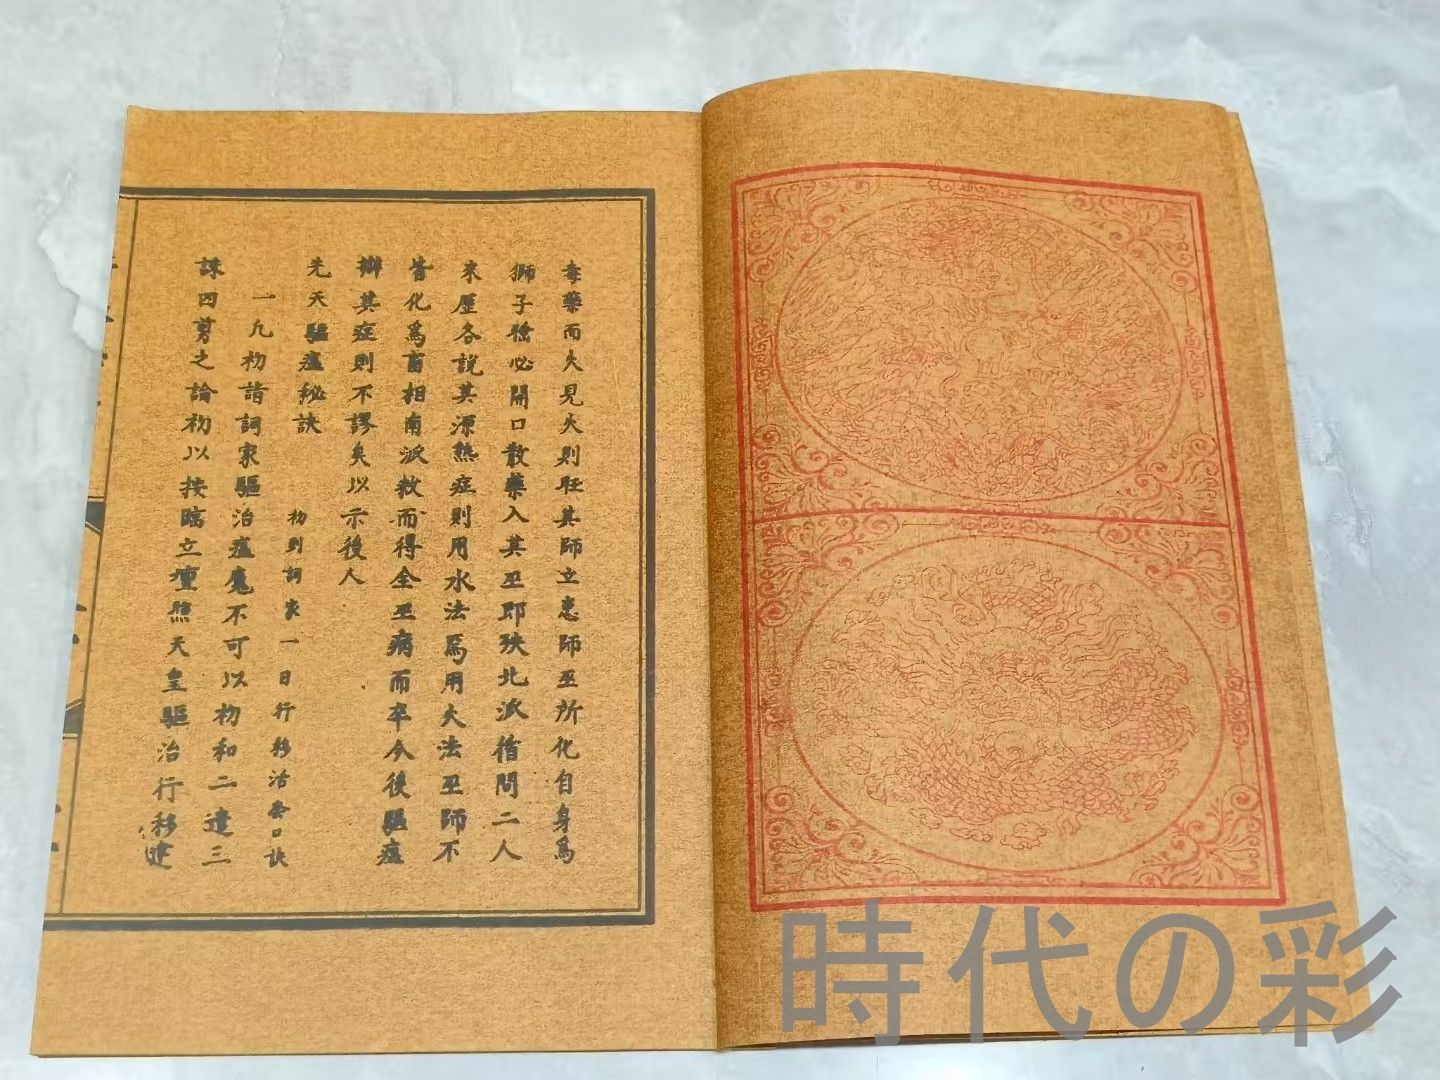 毒藥而火見火則旺其師立惠師巫所化自身爲
獅子恠必開口散藥入其巫即殃北派循問二人
來歷各說其源熱症則用水法爲用火法巫師不
皆化爲畜相南派救而得全巫病而卒今後驅瘟
辦其症則不謬矣以示後人
先天驅瘟秘訣
初到詞家一日行移活套口訣
一凡初詣詞家驅治瘟魔不可以初和二遣三
誅四剪之論初以按臨立壇照天皇驅治行移建
時代の彩